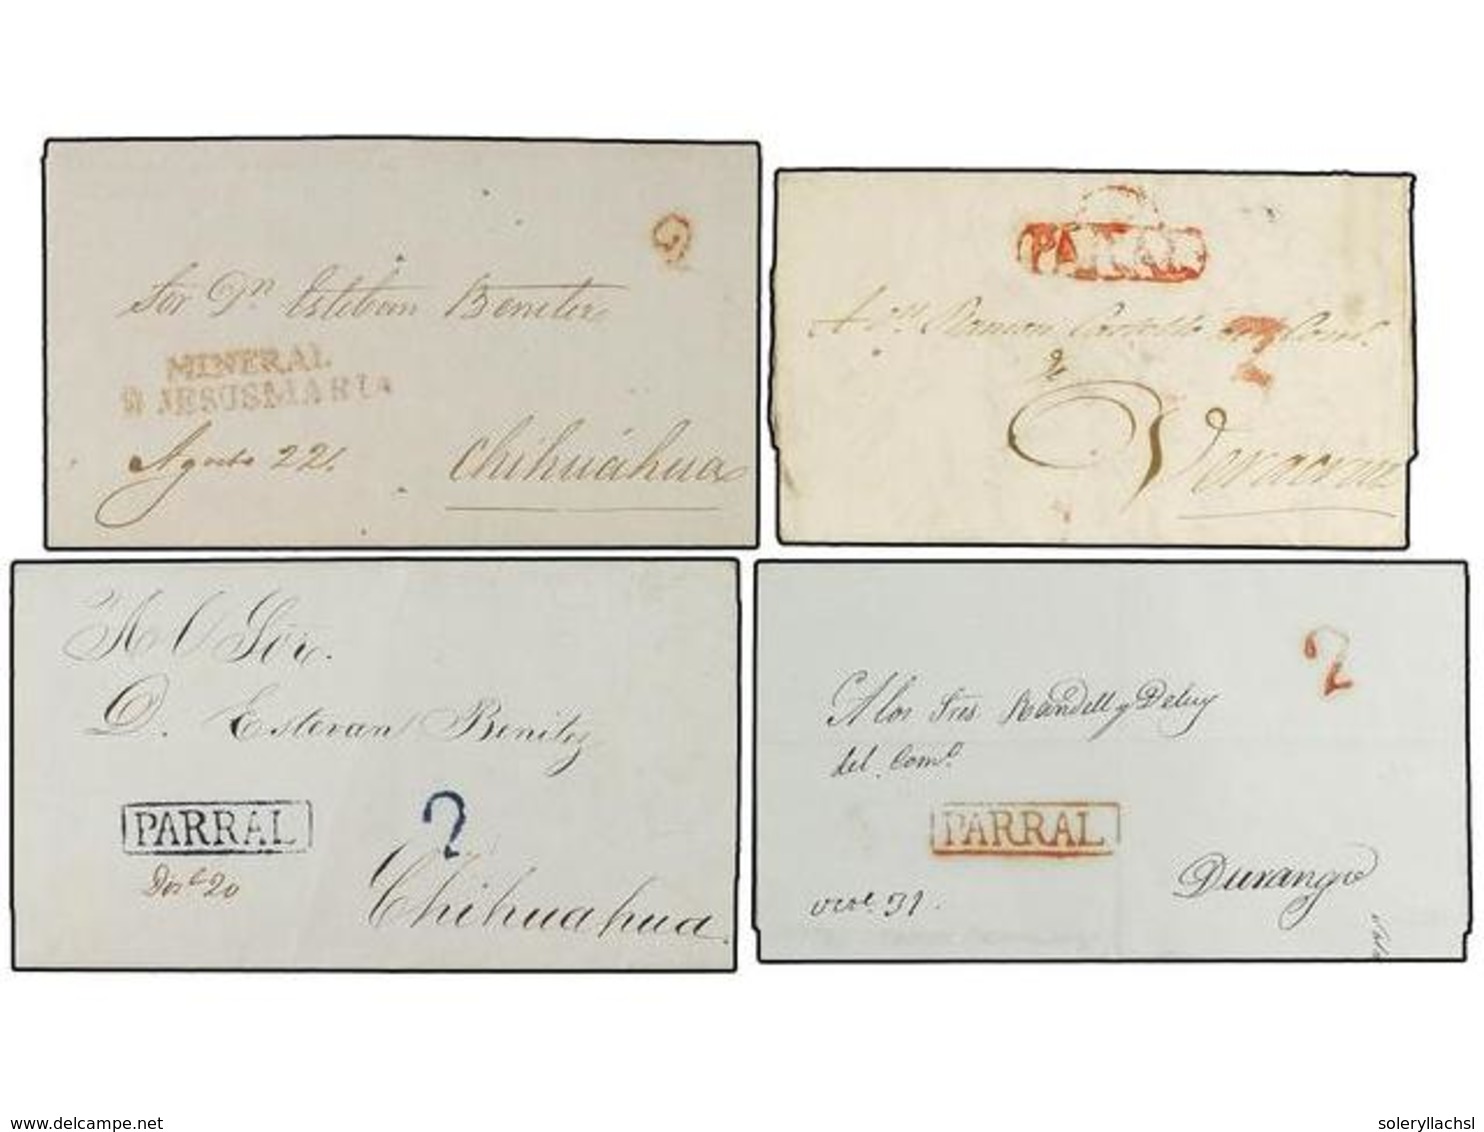 Sor Dn Esteban Benitez
MINERAL
D JESUSMARIA
Agosto 22.
Chihuahua
PARRAL
2
Ramon
2
Veracruz
Al Sor.
D. Estevan Benitez
PARRAL
2
Dice 20
Chihuahua.
2
A los Sres. Randell y
del Como.
PARRAL
31.
Durango
www.delcampe.net
soleryllachsl